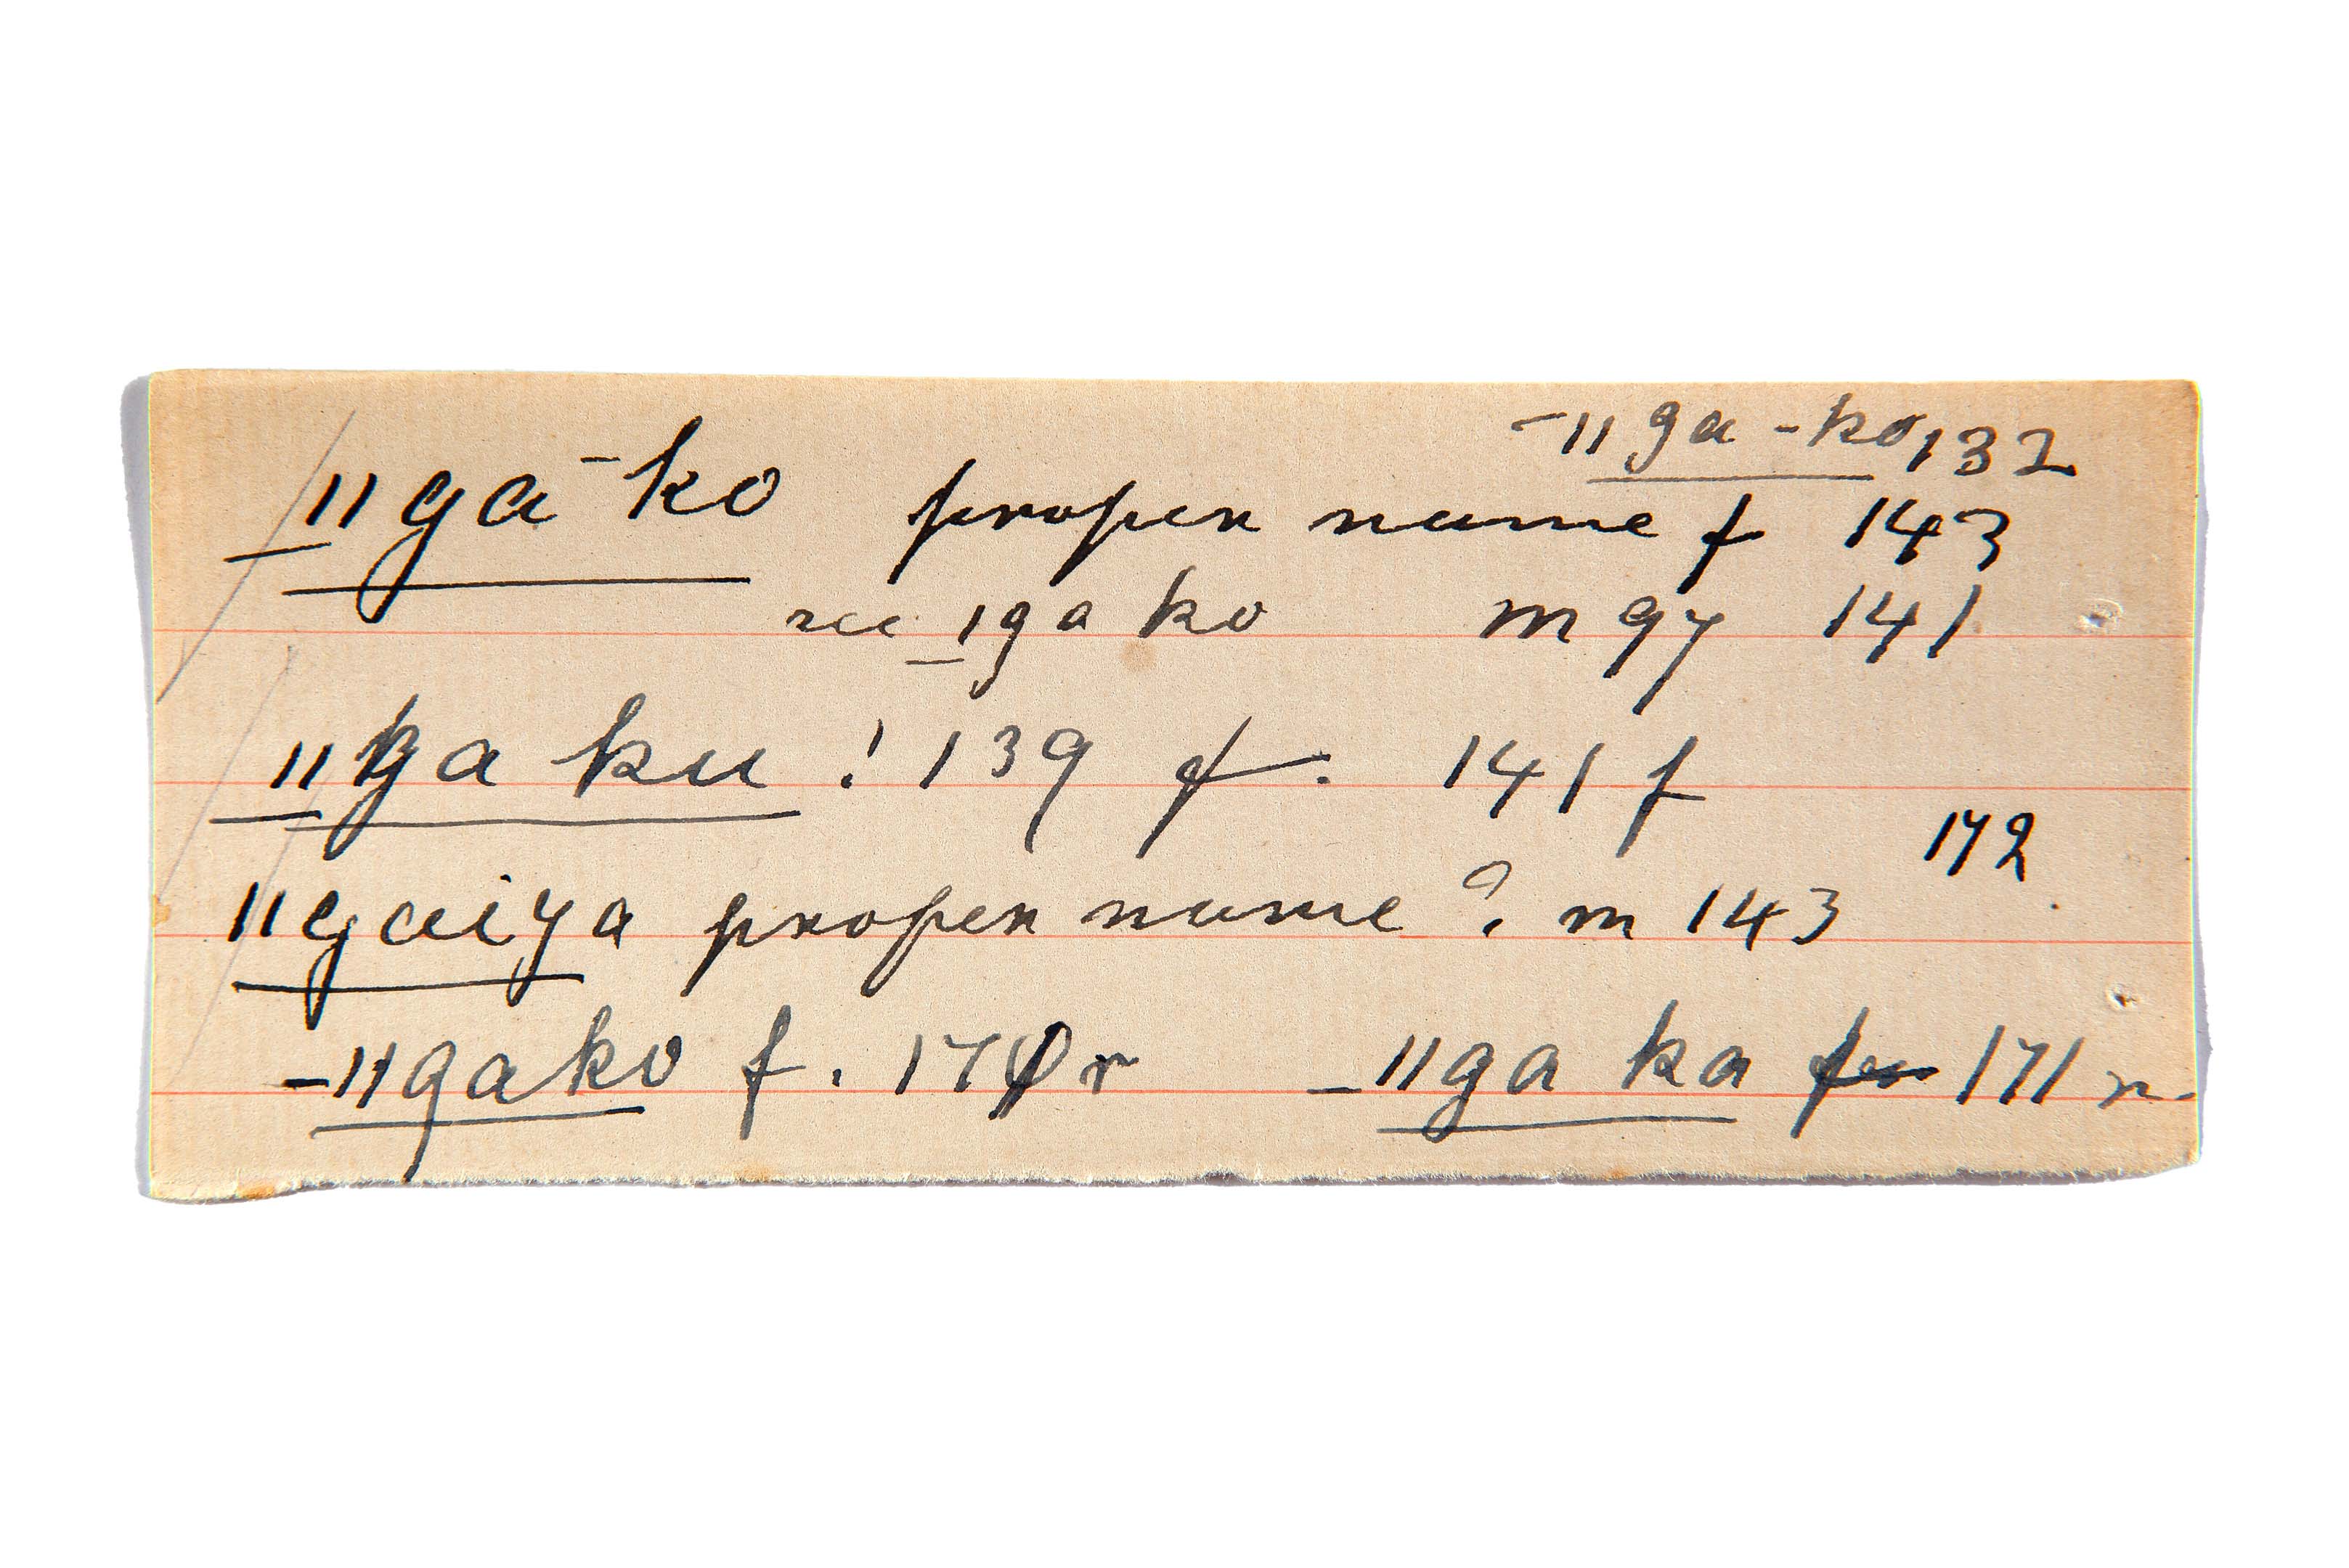 -ǁga-ko, 132
_ǁga-ko proper name f 143
see _ǀga ko m 97 141
_ǁga ku ! 139 f. 141 f
172
ǁgaiya proper name ? m 143
-ǁgako f. 170 r _ǁga ka 171 r.